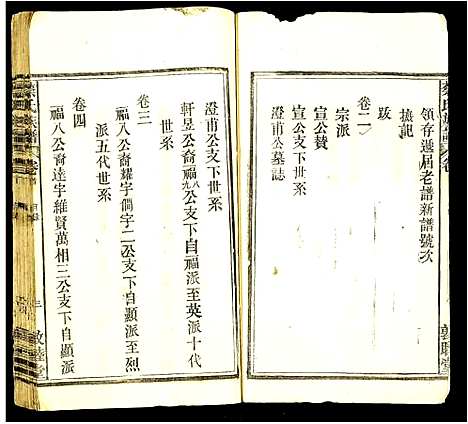 領存遞届老譜新譜號次
摭記
跋
卷二
宗派
宣公贊
宣公支下世系
澄甫公墓誌
澄甫公支下世系
軒昱公裔福八公支下自福派至英派十代
世系
卷三
福八公裔耀宇僩宇二公支下自顯派至烈
派五代世系
卷四
福八公裔達宇維賢萬相三公支下自顯派
三
敦睦堂